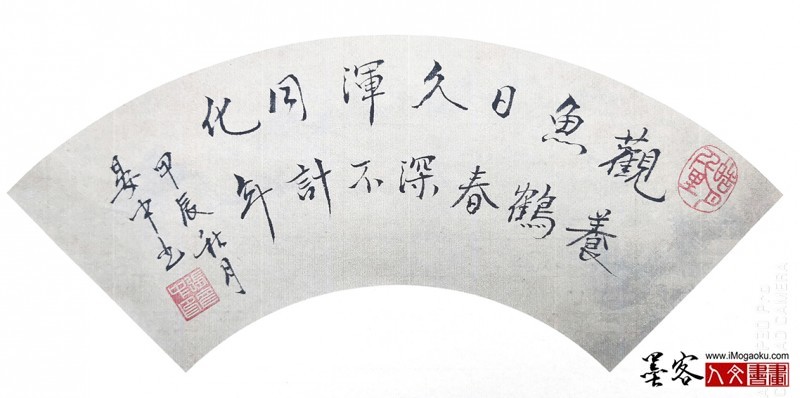 觀魚日久渾同化
養鶴春深不計年
甲辰秋月
晏中书
墨客
www.iMogaoku.com
人文書畫